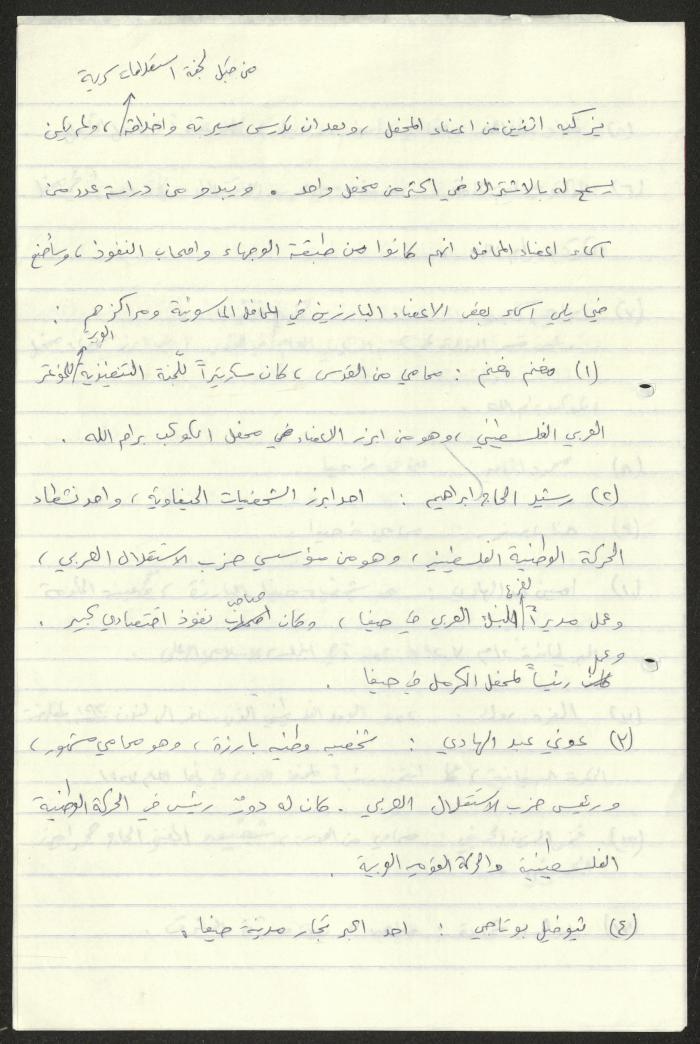 من قبل لجنة استعلامات سرية
يزكيه اثنين من اعضاء المحفل ، وبعد ان تدرس سيرته واخلاقه ، ولم يكن
يسمح له بالاشتراك في اكثر من محفل واحد . ويبدو من دراسة عدد من
اسماء اعضاء المحافل انهم كانوا من طبقة الوجهاء واصحاب النفوذ ، وسأضع
فيما يلي اسماء بعض الاعضاء البارزين في المحافل الماسونية ومراكزهم :
(١) مغنم مغنم : محامي من القدس ، كان سكرتيراً للجنة التنفيذية للمؤتمر
العربي الفلسطيني ، وهو من ابرز الاعضاء في محفل الكوكب برام الله .
(٢) رشيد الحاج ابراهيم : احد ابرز الشخصيات الحيفاوية ، واحد نشطاء
الحركة الوطنية الفلسطينية ، وهو من مؤسسي حزب الاستقلال العربي ،
لفرع صاحب
وعمل مديراً البنك العربي في حيفا ، وكان نفوذ اقتصادي كبير .
وعمل
رئيساً لمحفل الكرمل في حيفا .
(٣) عوني عبد الهادي : شخصيه وطنيه بارزة ، وهو محامي مشهور ،
ورئيس حزب الاستقلال العربي . كان له دورٌ رئيس في الحركة الوطنية
الفلسطينية والحركة القوميه العربية .
(٤) تيوفيل بوتاجي : احد اكبر تجار مدينة حيفا .